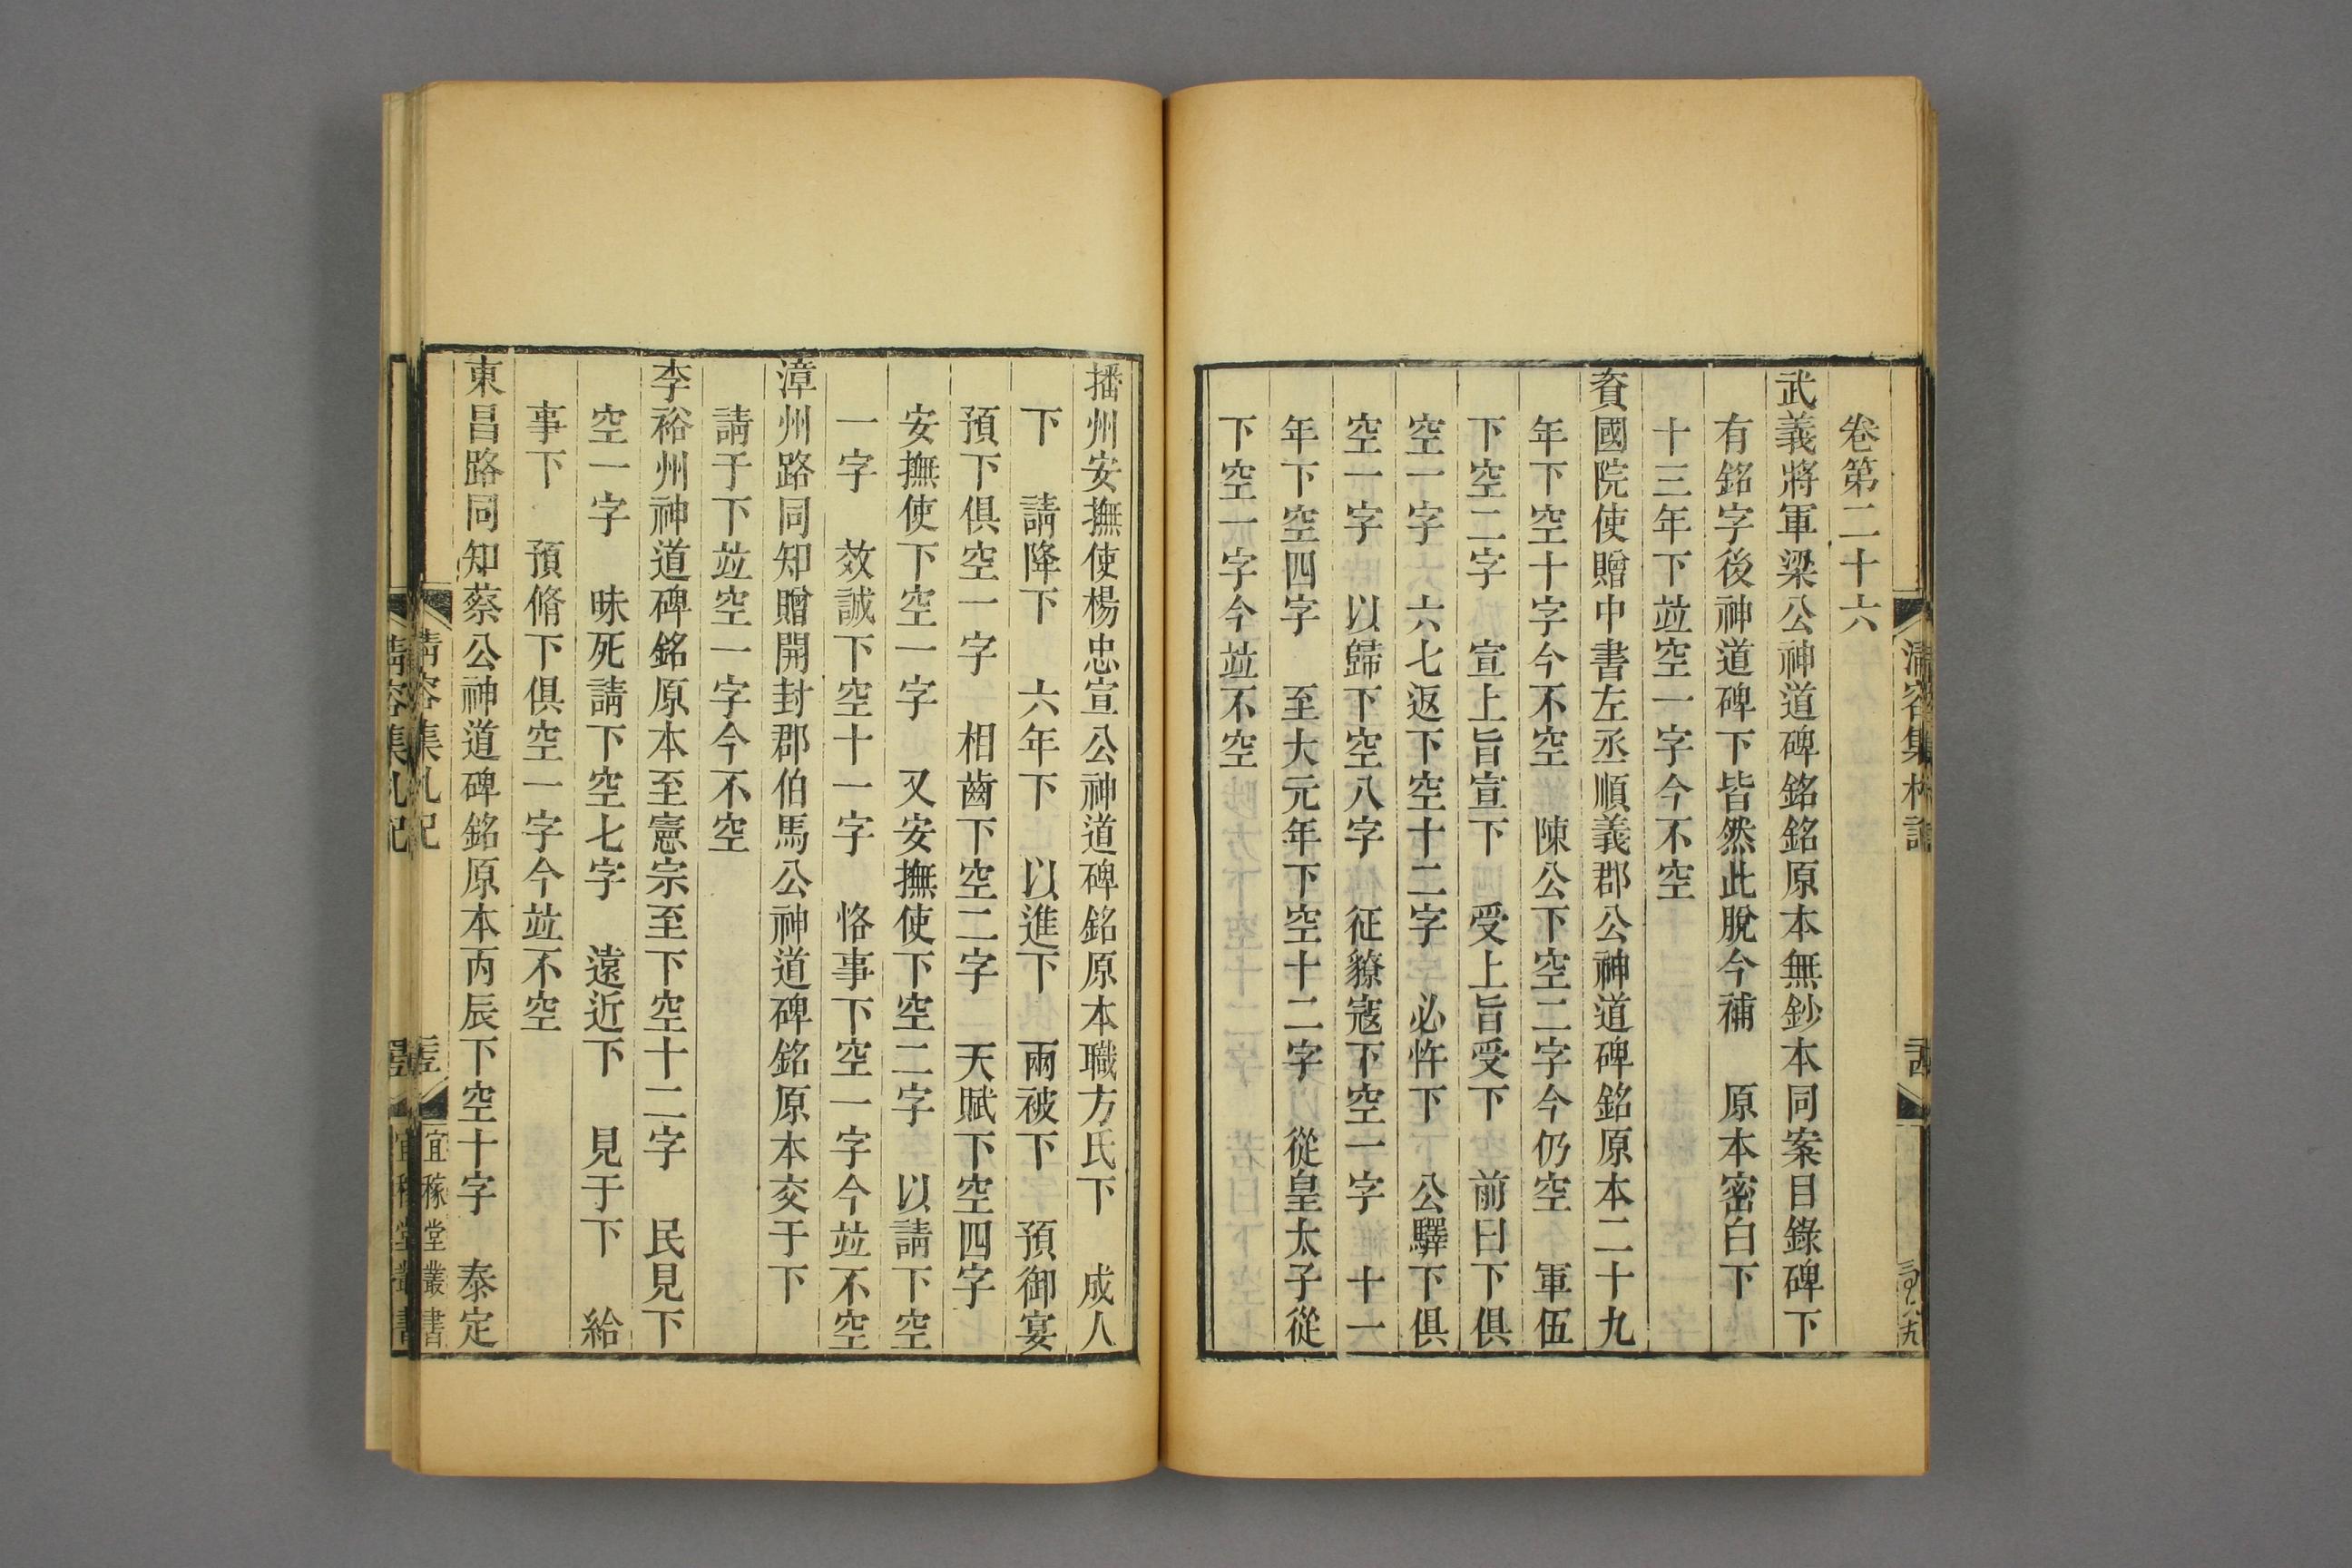 卷第二十六
武義將軍梁公神道碑銘銘原本無鈔本同案目錄碑下
有銘字後神道碑下皆然此脫今補　原本密白下
十三年下竝空一字今不空
資國院使贈中書左丞順義郡公神道碑銘原本二十九
年下空十字今不空　陳公下空二字今仍空　軍伍
下空二字　宣上旨宣下　受上旨受下　前曰下俱
空一字　六七返下空十二字　必忤下　公驛下俱
空一字　以歸下空八字　征獠寇下空一字　十一
年下空四字　至大元年下空十二字　從皇太子從
下空一字今竝不空
播州安撫使楊忠宣公神道碑銘原本職方氏下　成人
下　請降下　六年下　以進下　兩被下　預御宴
預下俱空一字　相齒下空二字　天賦下空四字
安撫使下空一字　又安撫使下空二字　以請下空
一字　效誠下空十一字　恪事下空一字今竝不空
漳州路同知贈開封郡伯馬公神道碑銘原本交于下
請于下竝空一字今不空
李裕州神道碑銘原本至憲宗至下空十二字　民見下
空一字　昧死請下空七字　遠近下　見于下　給
事下　預脩下俱空一字今竝不空
東昌路同知蔡公神道碑銘原本丙辰下空十字　泰定
清容集札記
宜稼堂叢書